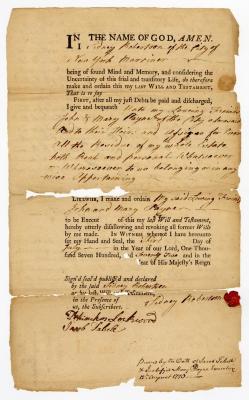 IN THE NAME OF GOD, AMEN.
I Sidney Robertson of the City of
New York Marriner
being of sound Mind and Memory, and considering the
Uncertainty of this frail and transitory Life, do therefore
make and ordain this my LAST WILL AND TESTAMENT,
That is to say
FIRST, after all my just Debts be paid and discharged,
I give and bequeath Unto my Loving Friends
John & Mary Payne of the City aforesaid
and to their Heirs and Assigns for Ever
all the Residue of my whole Estate
both Real and personal Whatsoever
or Wheresoever to me belonging or in any
wise Appertaining
LIKEWISE, I make and ordain My said Loving Friends
John and Mary Payne
to be Execut of this my last Will and Testament,
hereby utterly disallowing and revoking all former Wills
by me made. IN WITNESS whereof I have hereunto
set my Hand and Seal, the Third Day of
July in the Year of our Lord, One Thou-
sand Seven Hundred, and Seventy Two and in the
Year of His Majesty's Reign
Sign'd seal'd published and declared
by the said Sidney Robertson
as his last Will and Testament,
in the Presence of
us, the Subscribers.
Sidney Robertson
Lockwood
Jacob
Proved by the Oath of Jacob
Mary Payne
August 1773